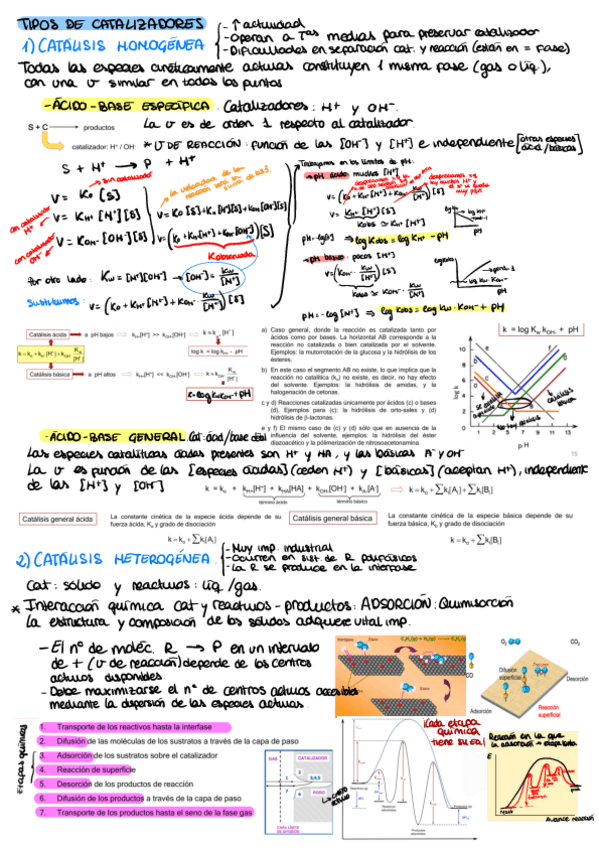 TIPOS DE CATALIZADORES
1) CATÁLISIS HOMOGÉNEA
- ↑ actividad
- Operan a Tas medias para preservar catalizador
- Dificultades en separación cat. y reacción (están en = fase)
Todas las especies cinéticamente activas constituyen 1 misma fase (gas o líq.),
con una v similar en todos los puntos
- ÁCIDO-BASE ESPECÍFICA. Catalizadores: H+ y OH-.
S + C → productos
catalizador: H+ / OH-
La v es de orden 1 respecto al catalizador.
* V DE REACCIÓN: función de las [OH-] y [H+] e independiente [otras especies ácid/básicas]
S + H+ → P + H+
sin catalizador
V = K0 [S]
con catalizador H+
V = KH+ [H+][S]
con catalizador OH-
V = KOH- [OH-][S]
V = K0 [S] + KH+[H+][S] + KOH-[OH-][S]
V = (K0 + KH+[H+] + KOH-[OH-])[S]
Kobservada
Por otro lado: Kw = [H+][OH-] → [OH-] = Kw/[H+]
Sustituimos: v = (K0 + KH+[H+] + KOH- Kw/[H+]) [S]
Trabajamos en los límites de pH:
pH ácido: mucha [H+]
V = KH+ [H+][S]
Kobs ≈ KH+ [H+]
pH = -log[H+] ⇒ log Kobs = log KH+ - pH
pH básico: pocos [H+]
Kobs ≈ KOH- Kw/[H+]
pH = -log [H+] ⇒ log Kobs = log Kw · KOH- + pH
Catálisis ácida
a pH bajos
kH+[H+] >> kOH-[OH-]
k = kH+ [H+]
log k = log kH+ - pH
k = k0 + kH+ [H+] + kOH- Kw/[H+]
Catálisis básica
a pH altos
kH+[H+] << kOH-[OH-]
k = kOH- Kw/[H+]
k = log Kw KOH- + pH
a) Caso general, donde la reacción es catalizada tanto por
ácidos como por bases. La horizontal AB corresponde a la
reacción no catalizada o bien catalizada por el solvente.
Ejemplos: la mutorrotación de la glucosa y la hidrólisis de los
ésteres.
b) En este caso el segmento AB no existe, lo que implica que la
reacción no catalítica (k0) no existe, es decir, no hay efecto
del solvente. Ejemplos: la hidrólisis de amidas, y la
halogenación de cetonas.
c y d) Reacciones catalizadas únicamente por ácidos (c) o bases
(d). Ejemplos para (c): la hidrólisis de orto-sales y (d)
hidrólisis de β-lactonas.
e y f) El mismo caso de (c) y (d) sólo que en ausencia de la
influencia del solvente, ejemplos: la hidrólisis del éster
diazoacático y la polimerización de nitrosoacetamina.
k = log Kw kOH- + pH
log k
10
8
6
4
2
1 2 5 7 9 11 13
pH
catálisis básica
15
- ÁCIDO-BASE GENERAL. Cat: ácid/base débil
Las especies catalíticas ácidas presentes son H+ y HA, y las básicas A- y OH-
La v es función de las [especies ácidas] (ceden H+) y [básicas] (aceptan H+), independiente
de las [H+] y [OH-]
k = k0 + kH+[H+] + kHA[HA] + kOH-[OH-] + kA[A-]
término ácido
término básico
k = k0 + ∑ki[Ai] + ∑ki[Bi]
Catálisis general ácida
La constante cinética de la especie ácida depende de su
fuerza ácida, Ka y grado de disociación
k = k0 + ∑ki[Ai]
Catálisis general básica
La constante cinética de la especie básica depende de su
fuerza básica, Kb y grado de disociación
k = k0 + ∑ki[Bi]
2) CATÁLISIS HETEROGÉNEA
- Muy imp. industrial
- Ocurren en sist. de R polifásicos
- La R se produce en la interfase
Cat: sólido y reactivos: líq/gas.
* Interacción química cat y reactivos-productos: ADSORCIÓN: Quimisorción
La estructura y composición de los sólidos adquiere vital imp.
- El nº de moléc. R → P en un intervalo
de t (v de reacción) depende de los centros
activos disponibles.
- Debe maximizarse el nº de centros activos accesibles
mediante la dispersión de las especies activas.
Hidrógeno
Eteno
Etano
O2
CO2
CO
Difusión superficial
Desorción
Adsorción
Reacción superficial
Etapas químicas
1. Transporte de los reactivos hasta la interfase
2. Difusión de las moléculas de los sustratos a través de la capa de paso
3. Adsorción de los sustratos sobre el catalizador
4. Reacción de superficie
5. Desorción de los productos de reacción
6. Difusión de los productos a través de la capa de paso
7. Transporte de los productos hasta el seno de la fase gas
GAS
CATALIZADOR
1
2
3,4,5
7
6
PORO
CAPA LÍMITE
DE DIFUSIÓN
centro activo
¡Cada etapa
química
tiene su Ea!
Reacción en la que
la adsorción → etapa lenta
E
Avance reacción